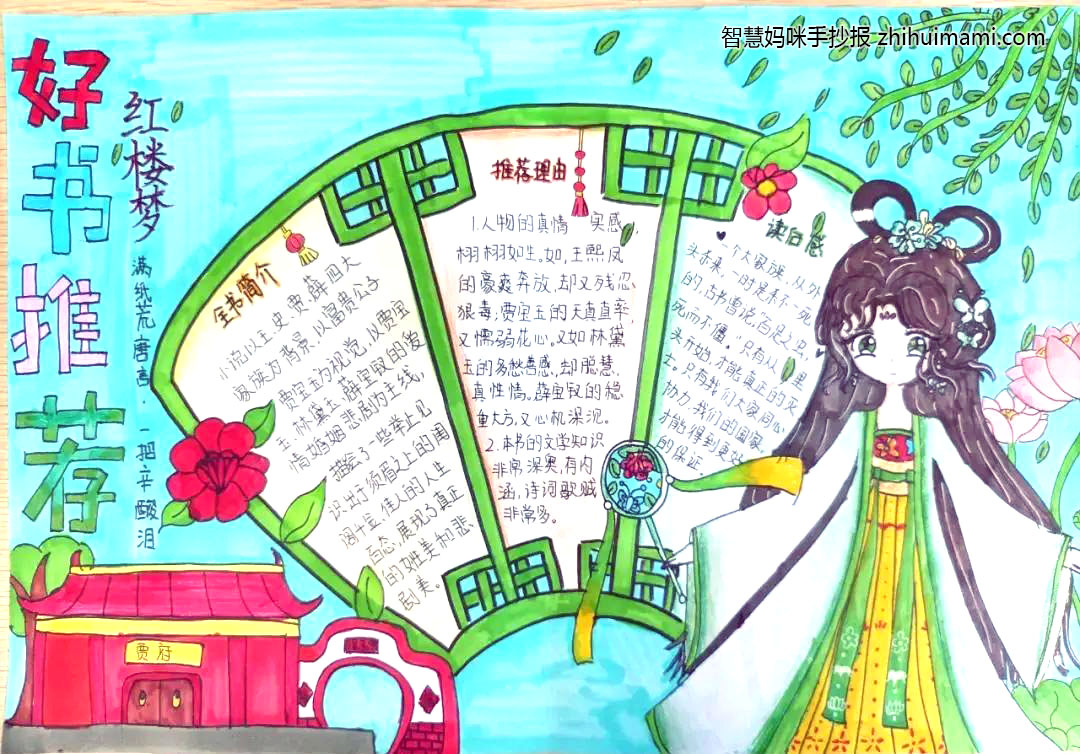 智慧妈咪手抄报 zhihuimami.com
好书推荐
红楼梦
满纸荒唐言.一把辛酸泪
全书简介
小说以王、史、贾、薛四大
家族为背景,以富贵公子
贾宝玉为视觉,以贾宝
玉、林黛玉、薛宝钗的爱
情婚姻悲剧为主线,
描绘了一些举止见
识出于须眉之上的闺
阁千金,佳人的人生
百态,展现了真正
的女性美和悲
剧美。
推荐理由
1.人物的真情 实感,
栩栩如生。如,王熙凤
的豪爽奔放,却又残忍
狠毒;贾宝玉的天真直率,
又懦弱花心。又如林黛
玉的多愁善感,却聪慧
真性情。薛宝钗的稳
重大方,又心机深沉。
2.本书的文学知识
非常深奥,有内
涵,诗词歌赋
非常多。
读后感
一个大家族,从外
头杀来,一时是杀不死
的,古书曾说,“百足之虫,
死而不僵。只有从 里
头开始,才能真正的灭
亡。只有我们大家同心
协力,我们的国家
才能得到更好
的保证。
贾府